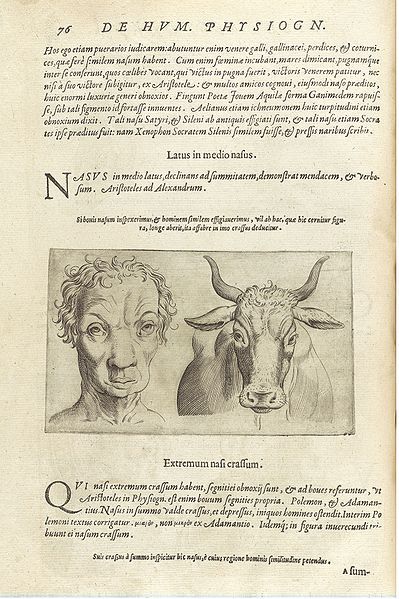 76 DE HVM. PHYSIOGN.
Hos ego etiam puerarios iudicarem: abutuntur enim venere galli, gallinacei, perdices, & coturni-
ces, quæ ferè similem nasum habent. Cum enim fœminæ incubant, mares dimicant, pugnamque
inter se conserunt, quos cælibes vocant, qui victus in pugna fuerit, victoris venerem patitur, nec
nisi à suo victore subigitur, ex Aristotele: & multos amicos cognoui, eiusmodi naso præditos,
huic enormi luxuriæ generi obnoxios. Fingunt Poetæ Iouem Aquilæ forma Ganimedem rapuis-
se, sub tali figmento id fortasse innuentes. Aelianus etiam ichneumonem huic turpitudini etiam
obnoxium dixit. Tali nasu Satyri, & Sileni ab antiquis effigiati sunt, & tali nasu etiam Socra
tes ipse præditus fuit: nam Xenophon Socratem Silenis similem fuisse, & pressis naribus scribit.
Latus in medio nasus.
NASVS in medio latus, declinans ad summitatem, demonstrat mendacem, & verbo-
sum. Aristoteles ad Alexandrum.
Si bouis nasum inspexerimus, & hominem similem effigiauerimus, vel ab hac, quæ hic cernitur figu-
ra, longe aberit, ita affabre in imo crassus deducitur.
Extremum nasi crassum.
QVI nasi extremum crassum habent, segnitiei obnoxij sunt, & ad boues referuntur, vt
Aristoteles in Physiogn. est enim bouum segnities propria. Polemon, & Adaman-
tius. Nasus in summo valde crassus, et depressus, iniquos homines ostendit. Interim Po
lemoni textus corrigatur, non ex Adamantio. Idemque; in figura inuerecundi tri-
buunt ei nasum crassum.
Suis crassus à summo inspicitur hic nasus, è cuius regione hominis similitudine petendus.
Asum-